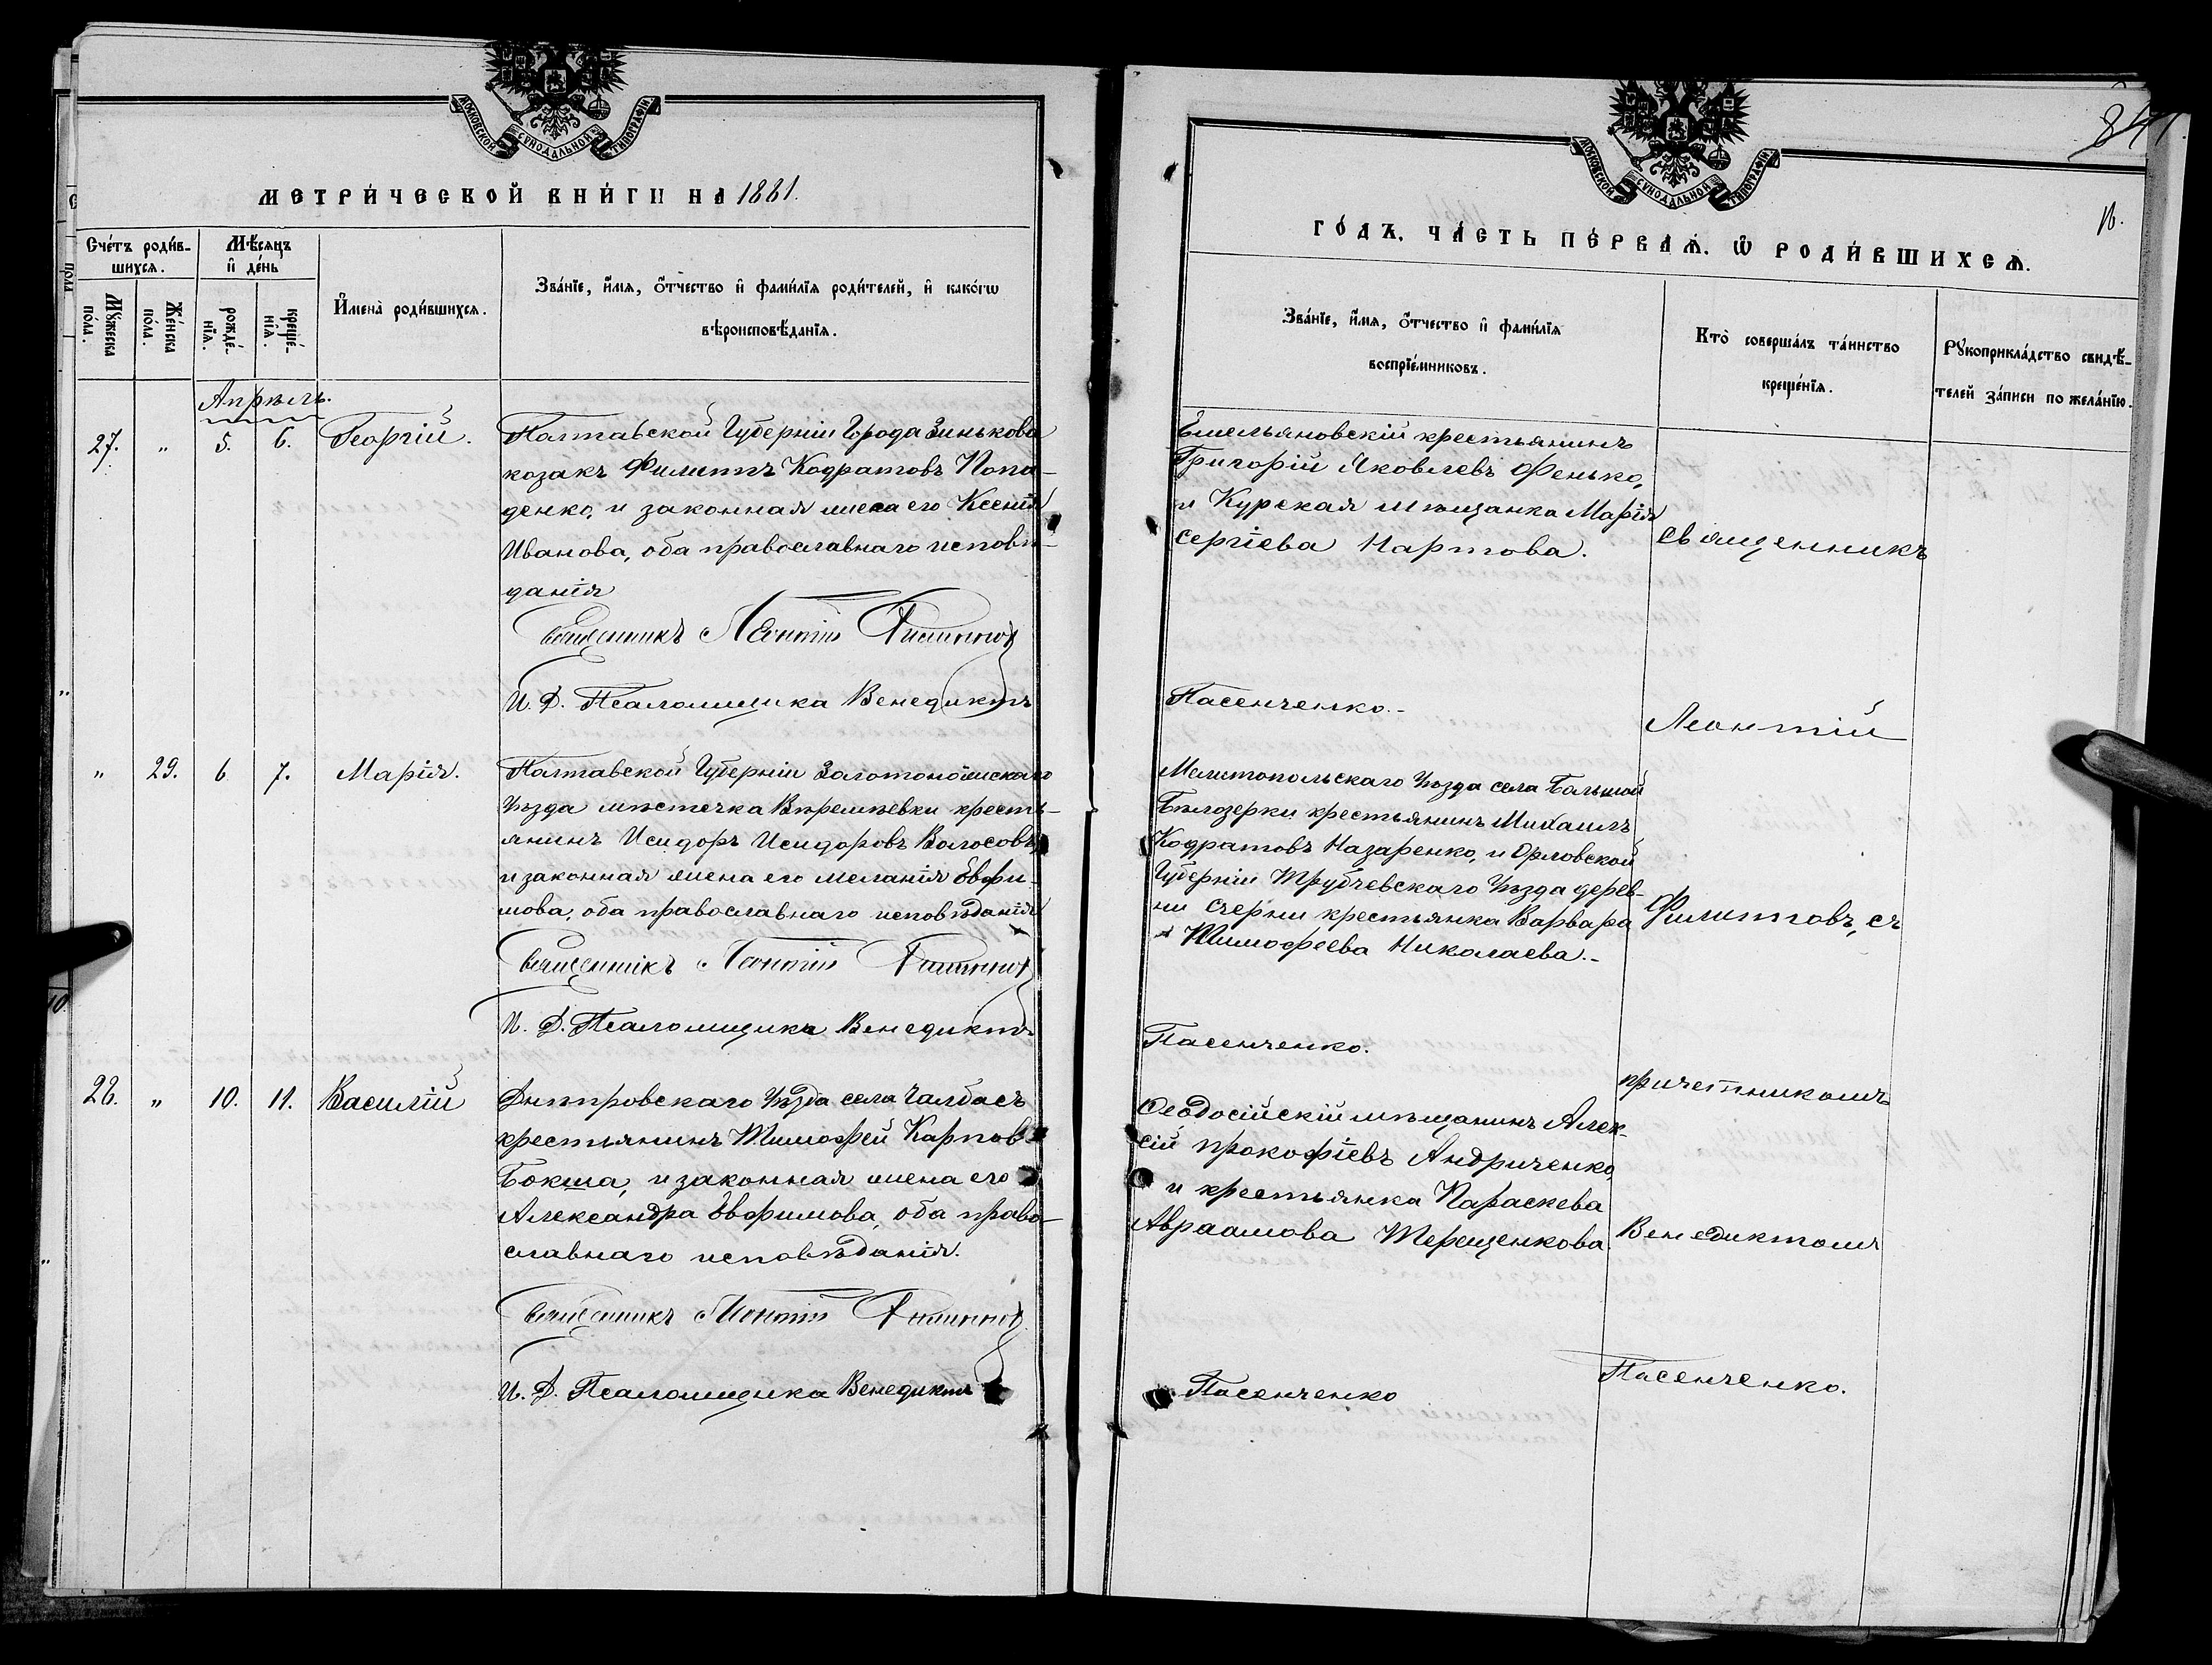 МОСКОВСКОЙ СѴНОДАЛЬНОЙ ТИПОГРАФІИ
МЕТРИ́ЧЕСКОЙ КНИ́ГИ НА 1881.
Сче́тъ роди́в-
шихся.
Му́жеска
по́ла.
Же́нска
по́ла.
Мѣ́сяцъ
и҆ де́нь
рожде́-
нїя.
креще́-
нїя.
И҆мена̀ роди́вшихся.
Зва́нїе, и҆́мя, ѻ҆́тчество и҆ фами́лїя роди́телей, и҆ како́гѡ
вѣроисповѣ́данїя.
Апрѣль.
27. " 5. 6. Георгій.
Полтавской Губерніи Города Зинькова
козакъ Филиппъ Кодратовъ Попа-
денко, и законная жена его Ксенія
Иванова, оба православнаго исповѣ-
данія
Священникъ Леонтій Филипповъ
И. Д. Псаломщика Венедиктъ
" 29. 6 7. Марія.
Полтавской Губерніи Золотоношскаго
Уѣзда мѣстечка Вѣремѣевки кресть-
янинъ Исидоръ Исидоровъ Волосовъ,
и законная жена его Меланія Евфи-
мова, оба православнаго исповѣданія
Священникъ Леонтій Филипповъ
И. Д. Псаломщика Венедиктъ
28. " 10. 11. Василій
Днѣпровскаго Уѣзда села Чалбасъ
крестьянинъ Тимофей Карповъ
Бокша, и законная жена его
Александра Евфимова, оба право-
славнаго исповѣданія.
Священникъ Леонтій Филипповъ
И. Д. Псаломщика Венедиктъ
МОСКОВСКОЙ СѴНОДАЛЬНОЙ ТИПОГРАФІИ
ГО́ДЪ. ЧА́СТЬ ПЕ́РВАЯ. Ѡ҆ РОДИ́ВШИХСЯ.
Зва́нїе, и҆́мя, ѻ҆́тчество и҆ фами́лїя
воспрїе́мниковъ.
Кто̀ соверша́лъ та́инство
креще́нїя.
Рꙋкоприкла́дство свидѣ́-
телей за́писи по жела́нїю.
Емельяновскій крестьянинъ
Григорій Яковлевъ Фенько,
и Курская мѣщанка Марія
Сергіева Нартова.
Священникъ
Пасенченко.-
Леонтій
Мелитопольскаго Уѣзда села Большой
Бѣлозерки крестьянинъ Михаилъ
Кодратовъ Назаренко, и Орловской
Губерніи Трубчевскаго Уѣзда дерев-
ни Счерни крестьянка Варвара
Тимофеева Николаева.-
Филипповъ, съ
Пасенченко.
причетникомъ
Ѳеодосійскій мѣщанинъ Алек-
сій Прокофіевъ Андриченко,
и крестьянка Параскева
Авраамова Терещенкова.
Венедиктомъ
Пасенченко
Пасенченко.